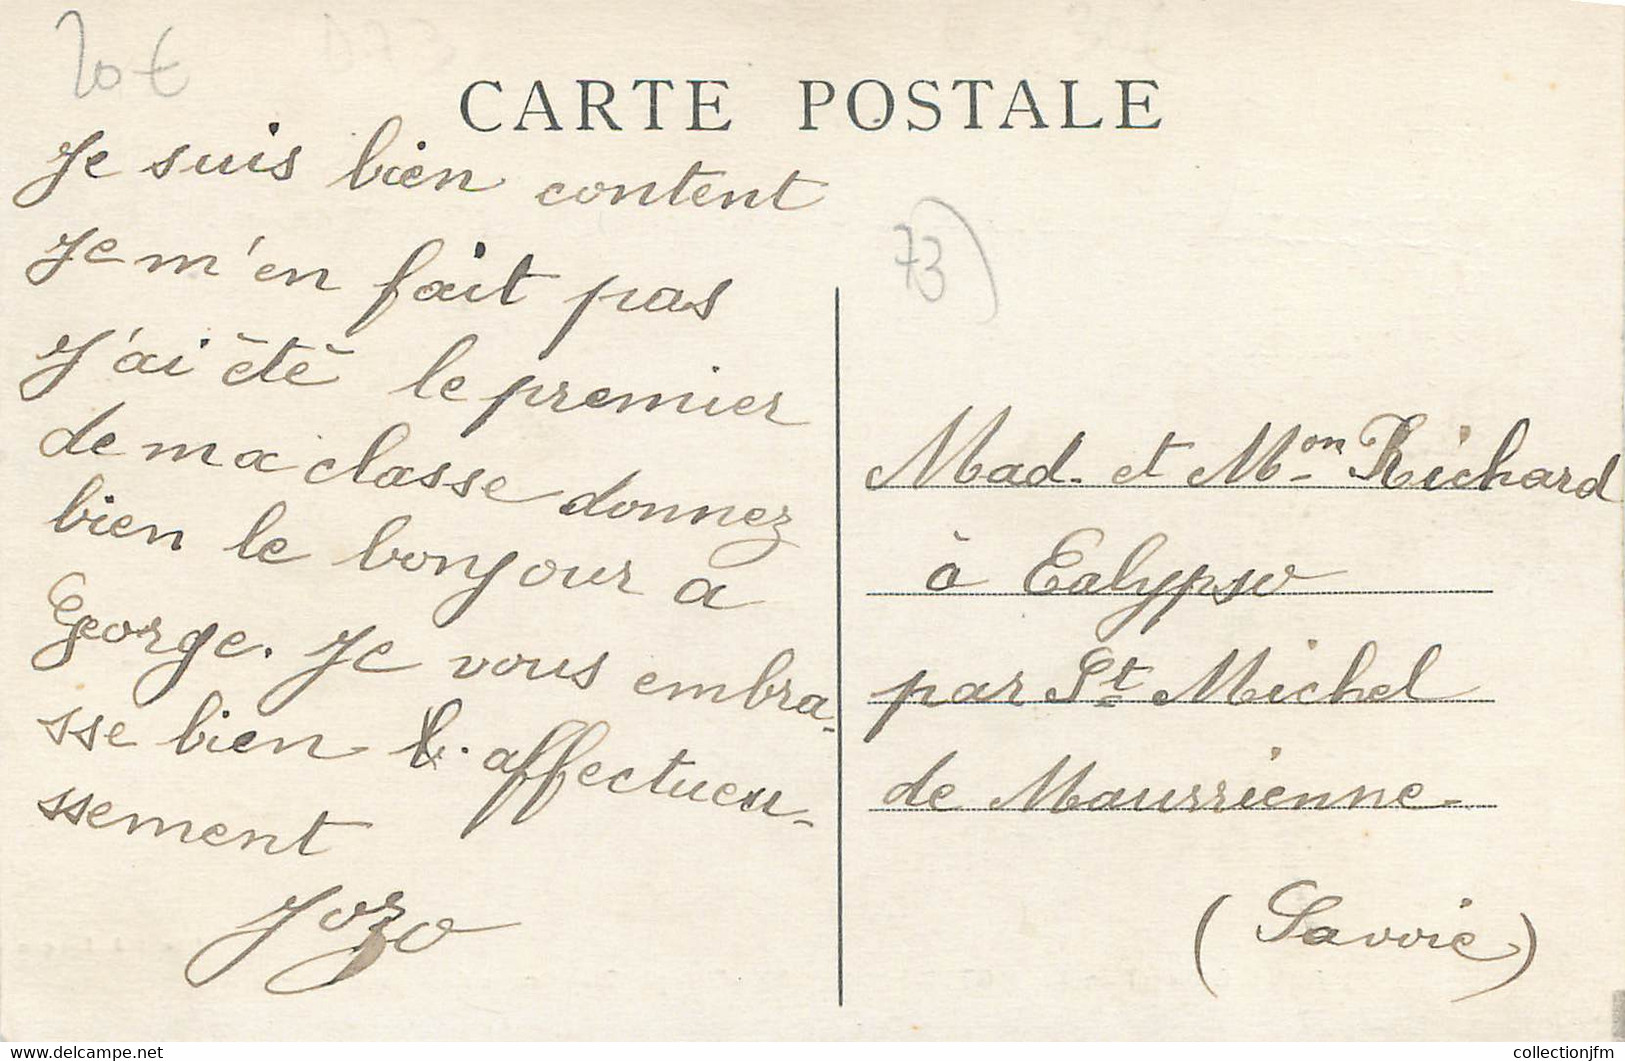 20€
CARTE POSTALE
Je suis bien content
Je m'en fait pas
J'ai été le premier
de ma classe donnez
bien le bonjour a
George. Je vous embra-
sse bien affectueu-
ssement
Jozo
73
Mad. et Mon Richard
à Calypso
par St Michel
de Maurrienne.
(Savoie)
www.delcampe.net
collectionjfm